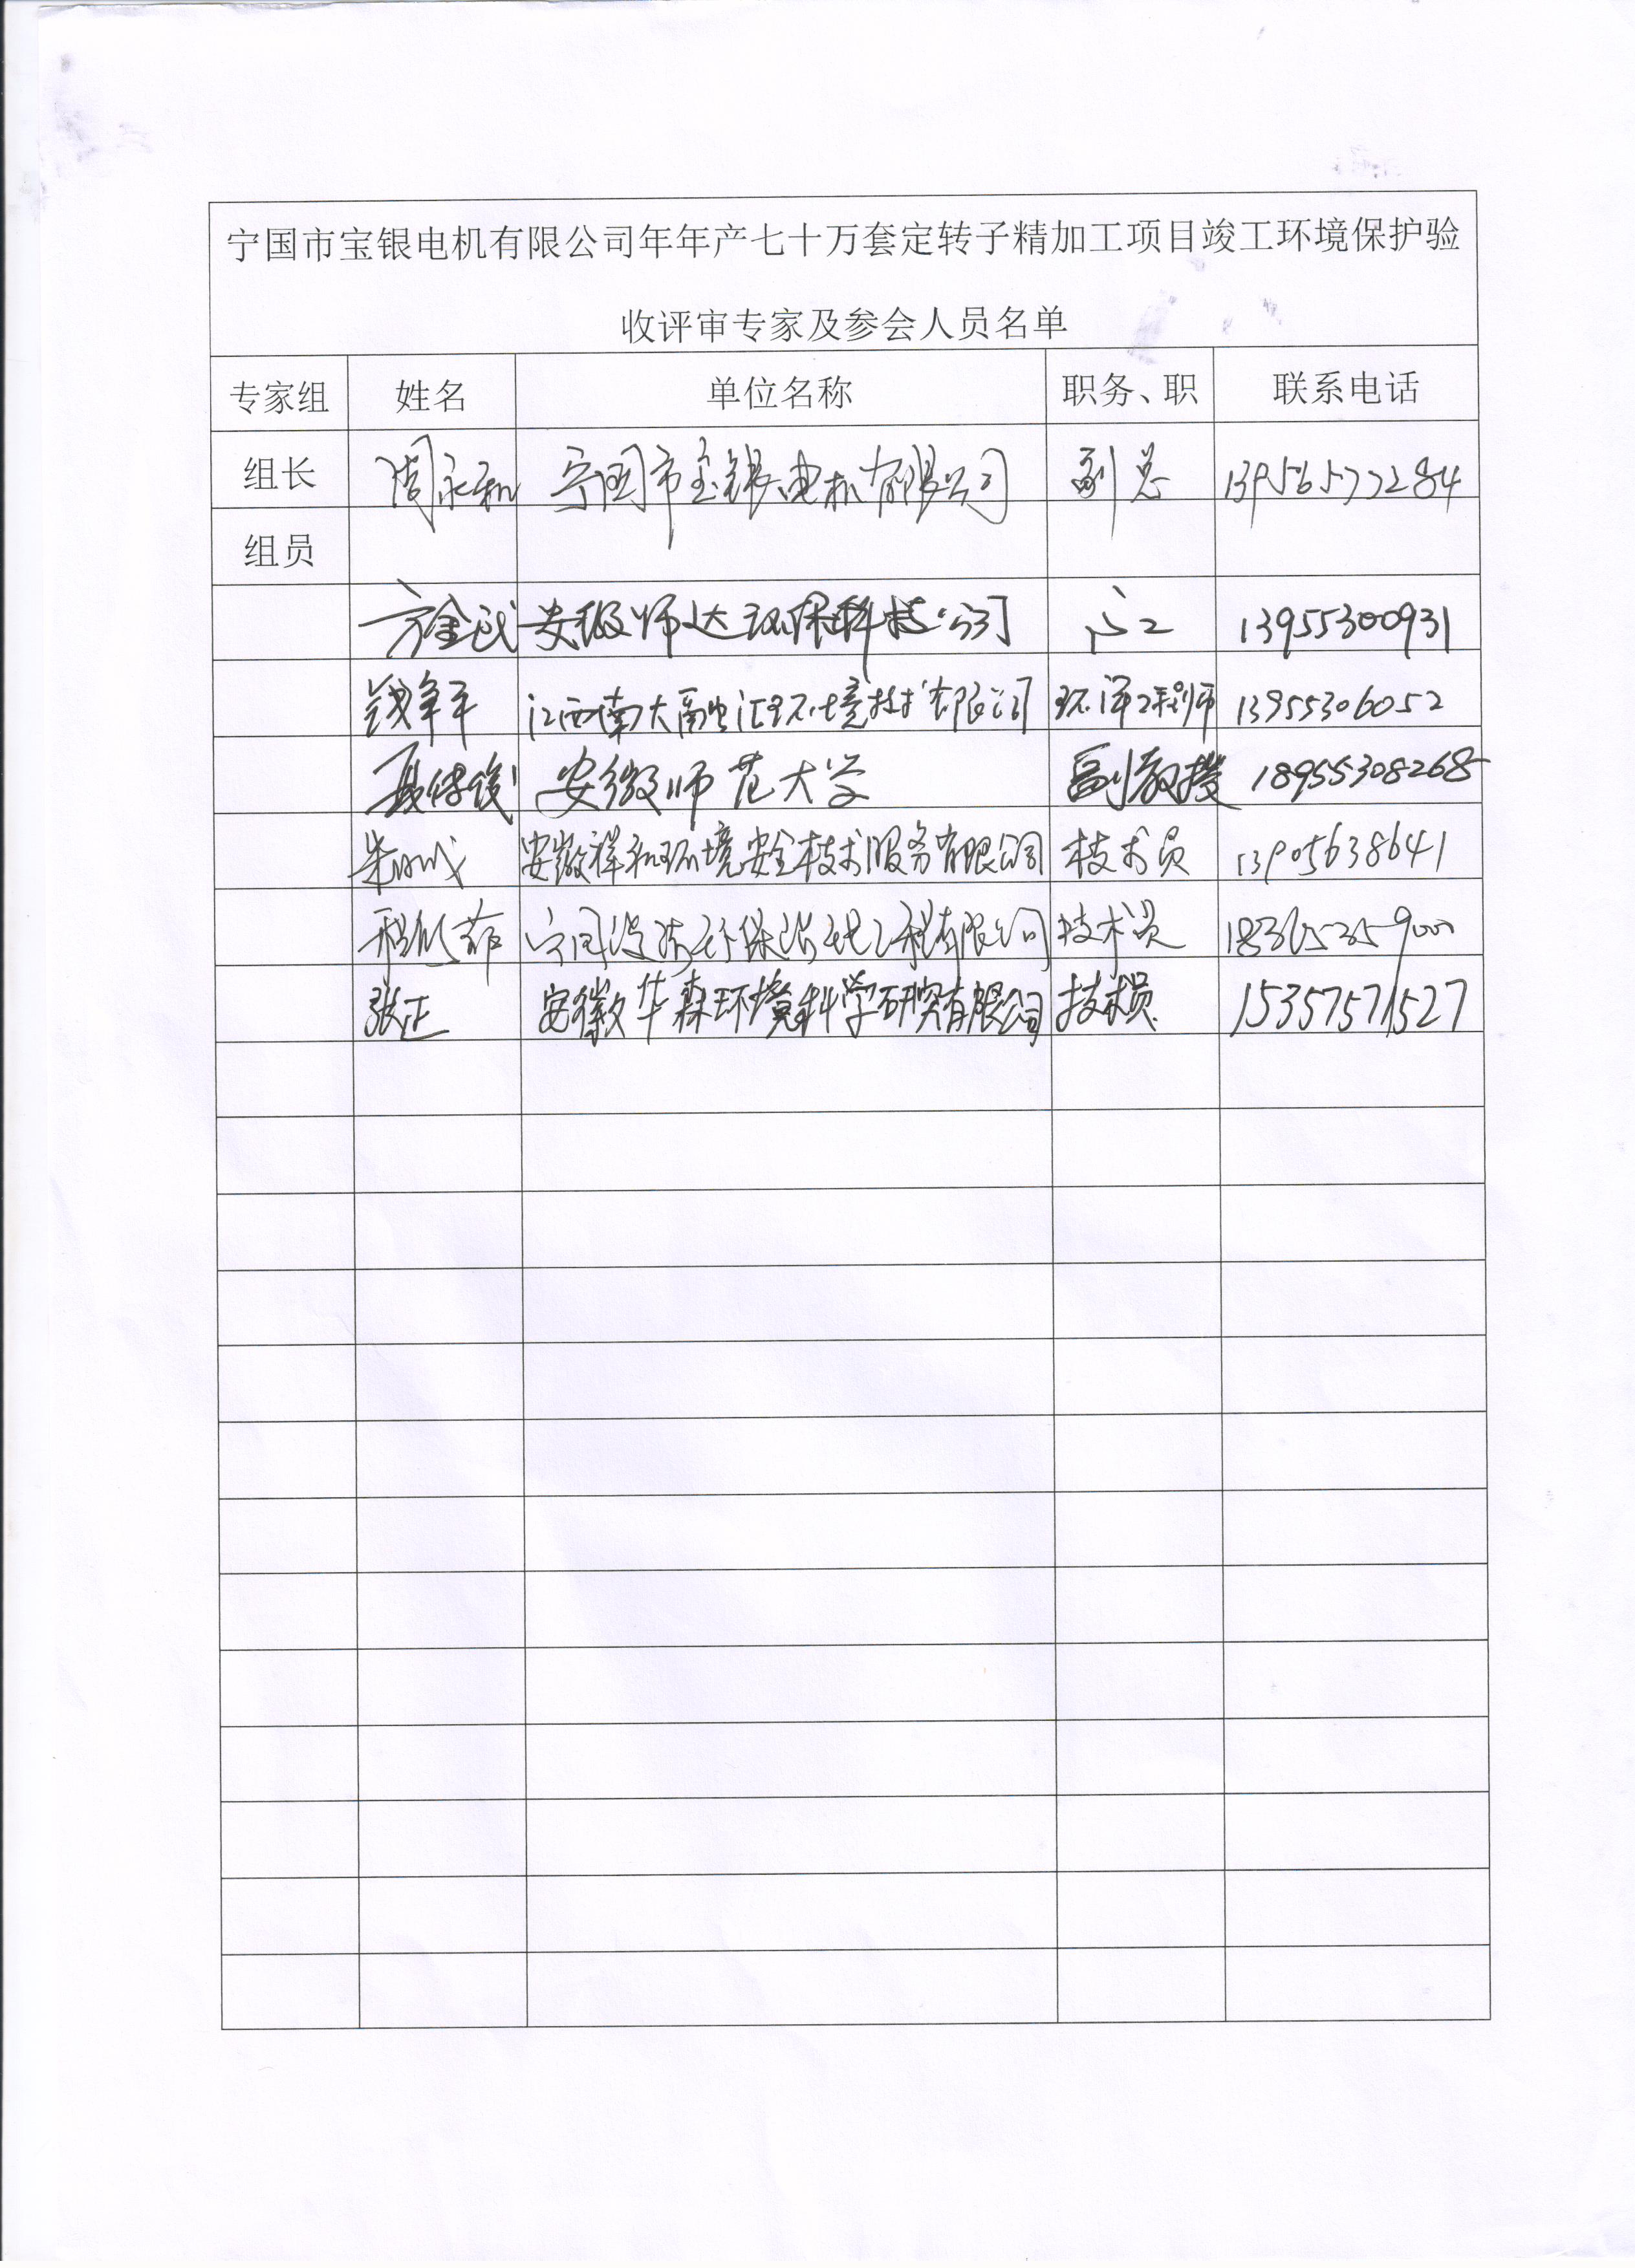 宁国市宝银电机有限公司年年产七十万套定转子精加工项目竣工环境保护验
收评审专家及参会人员名单
专家组 姓名 单位名称 职务、职 联系电话
组长 周永和 宁国市宝银电机有限公司 副总 13956577284
组员
方金武 安徽师达环保科技公司 13955300931
钱年平 江西南大融汇环境技术有限公司 环评工程师 13955306052
聂传俊 安徽师范大学 副教授 18955308268
朱 安徽祥和环境安全技术服务有限公司 技术员 13905638641
程 宁国 环保 工程有限公司 技术员 18365259000
张正 安徽华森环境科学研究有限公司 技术员 15357571527